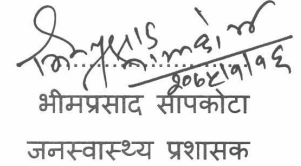 २०७९/१/१६
भीमप्रसाद सापकोटा
जनस्वास्थ्य प्रशासक